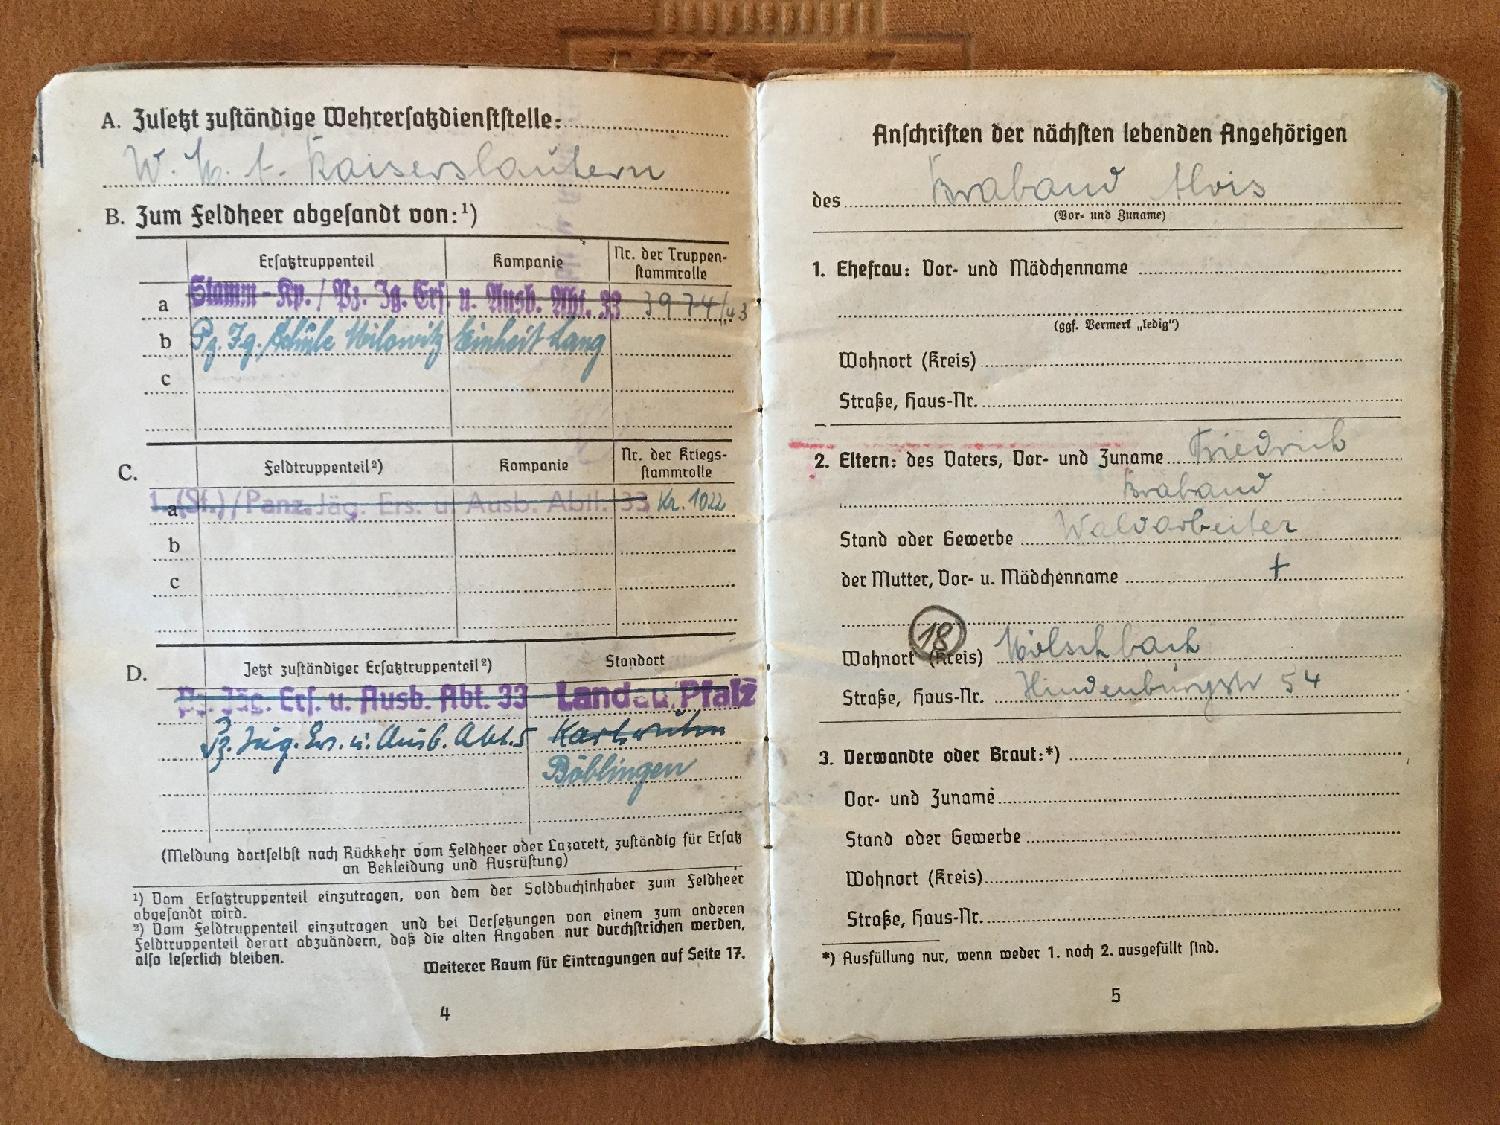 A. Zuletzt zuständige Wehrersatzdienststelle:
W. M. A. Kaiserslautern
B. Zum Feldheer abgesandt von:¹)
Ersatztruppenteil Kompanie Nr. der Truppenstammrolle
a Stamm-Kp./Pz. Jg. Ers. u. Ausb. Abt. 33 3974/43
b Pz. Jg. Schule Milowitz Einheit Lang
c
C. Feldtruppenteil²) Kompanie Nr. der Kriegsstammrolle
a 1. (Sf.) / Panz. Jäg. Ers. u. Ausb. Abtl. 33 Kr. 1022
b
c
D. Jetzt zuständiger Ersatztruppenteil²) Standort
Pz. Jäg. Ers. u. Ausb. Abt. 33 Landau/Pfalz
Pz. Jäg. Ers. u. Ausb. Abt. 5 Karlsruhe
Böblingen
(Meldung dortselbst nach Rückkehr vom Feldheer oder Lazarett, zuständig für Ersatz
an Bekleidung und Ausrüstung)
¹) Vom Ersatztruppenteil einzutragen, von dem der Soldbuchinhaber zum Feldheer
abgesandt wird.
²) Vom Feldtruppenteil einzutragen und bei Versetzungen von einem zum anderen
Feldtruppenteil derart abzuändern, daß die alten Angaben nur durchstrichen werden,
also leserlich bleiben.
Weiterer Raum für Eintragungen auf Seite 17.
4
Anschriften der nächsten lebenden Angehörigen
des Braband Alois
(Vor- und Zuname)
1. Ehefrau: Vor- und Mädchenname
(ggf. Vermerk „ledig")
Wohnort (Kreis)
Straße, Haus-Nr.
2. Eltern: des Vaters, Vor- und Zuname Friedrich
Braband
Stand oder Gewerbe Waldarbeiter
der Mutter, Vor- u. Mädchenname +
18
Wohnort (Kreis) Mölschbach
Straße, Haus-Nr. Hindenburgstr 54
3. Verwandte oder Braut:*)
Vor- und Zuname
Stand oder Gewerbe
Wohnort (Kreis)
Straße, Haus-Nr.
*) Ausfüllung nur, wenn weder 1. noch 2. ausgefüllt sind.
5